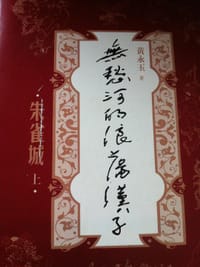 黃永玉 著
無愁河的浪蕩漢子
·朱雀城·
上